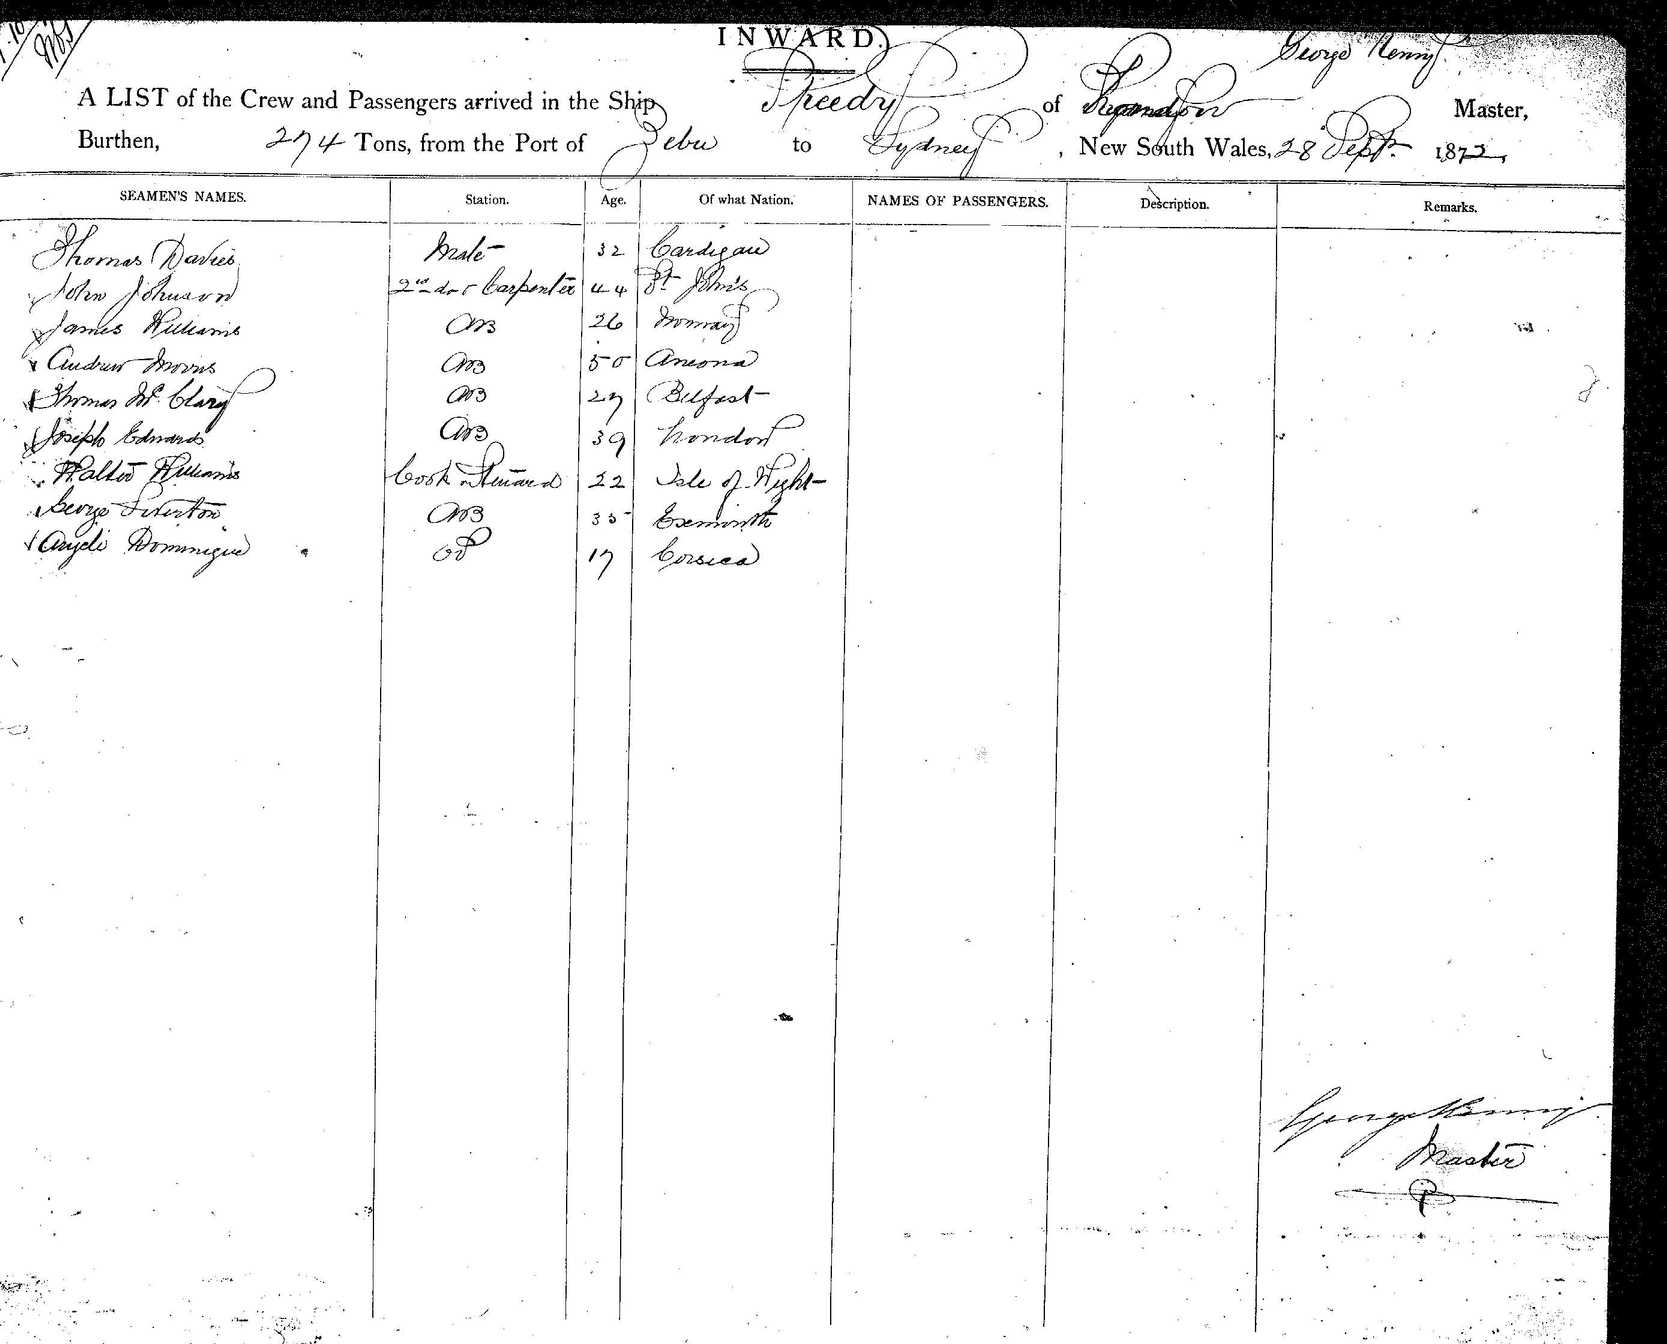 INWARD.
George Kenny
A LIST of the Crew and Passengers arrived in the Ship Speedy of Master,
Burthen, 274 Tons, from the Port of Zebu to Sydney, New South Wales, 28 Sept. 1872,
SEAMEN'S NAMES. Station. Age. Of what Nation. NAMES OF PASSENGERS. Description. Remarks.
Thomas Davies Mate 32 Cardigan
John Johnson 2nd do & Carpenter 44 St. John's
James Williams AB 26 Norway
Andrew Morris AB 50 Ancona
Thomas Mc. Clary AB 27 Belfast
Joseph Edwards AB 39 London
Walter Williams Cook & Steward 22 Isle of Wight
George AB 35 Exmouth
Angeli Dominique OS 17 Corsica
George Kenny
Master